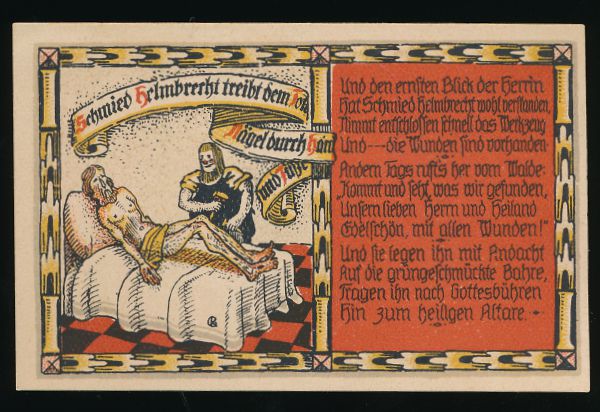 Schmied Helmbrecht treibt dem Tot
Nägel durch Hän
und Füße
Und den ernsten Blick der Herrin
Hat Schmied Helmbrecht wohl verstanden,
Nimmt entschlossen schnell das Werkzeug
Und --- die Wunden sind vorhanden.
Andern Tags rufts her vom Walde:
„Kommt und seht, was wir gefunden,
Unsern lieben Herrn und Heiland
Edelschön, mit allen Wunden!"
Und sie legen ihn mit Andacht
Auf die grüngeschmückte Bahre,
Tragen ihn nach Gottesbühren
Hin zum heiligen Altare.